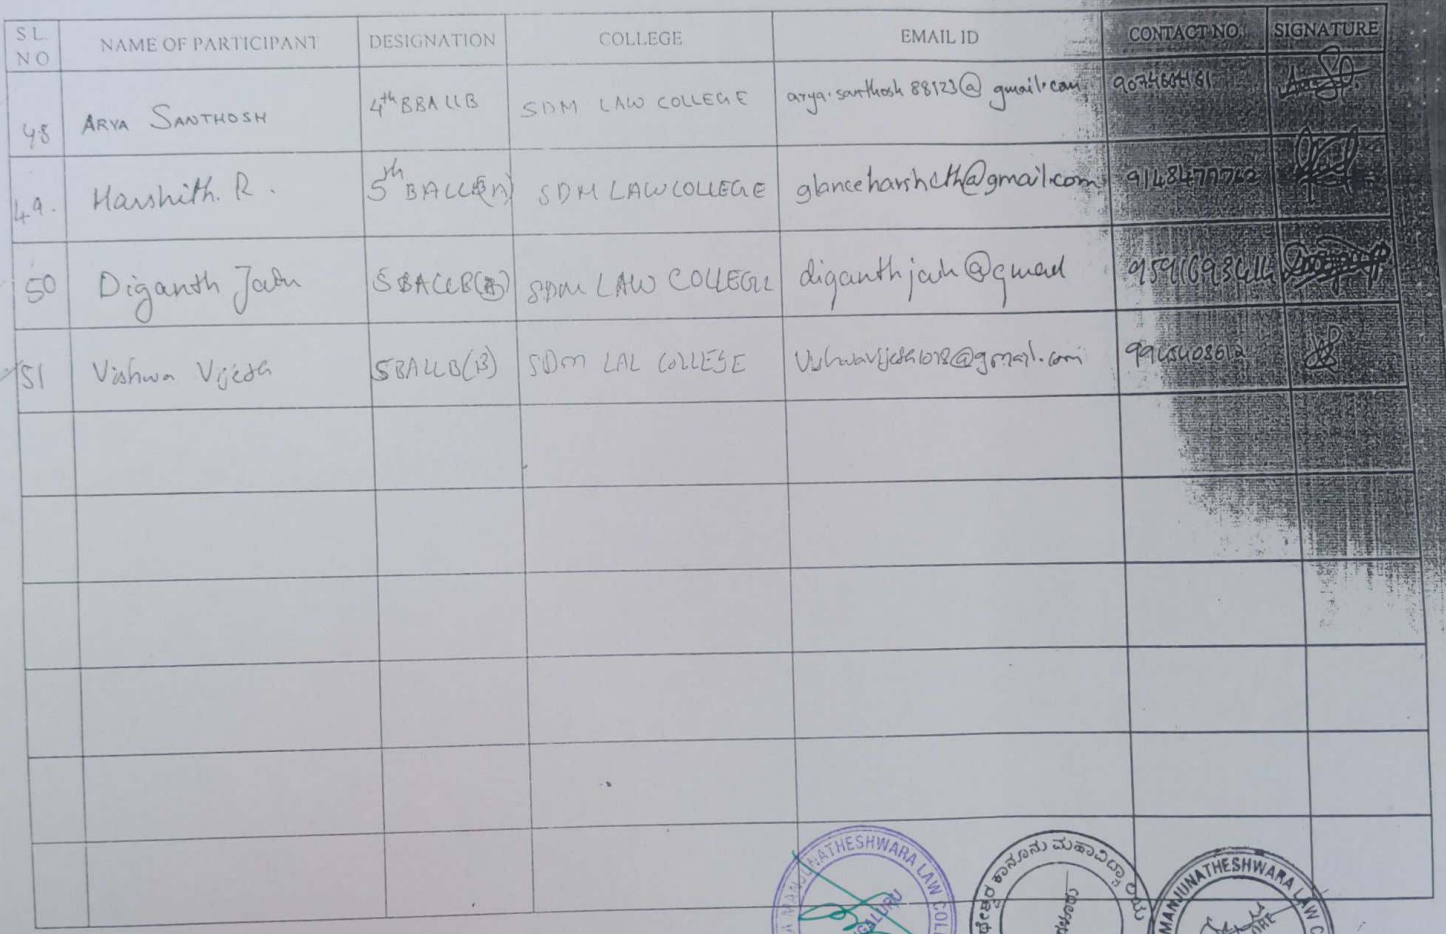 SL. NO NAME OF PARTICIPANT DESIGNATION COLLEGE EMAIL ID CONTACT NO. SIGNATURE
48 ARYA SANTHOSH 4th BBA LLB SDM LAW COLLEGE arya.santhosh88123@gmail.com
49. Harshith. R. 5th BALLB(A) SDM LAW COLLEGE glanceharshith@gmail.com
50 Diganth Jain 5BALLB(B) SDM LAW COLLEGE diganthjain@gmail
51 Vishwa Vijesh 5BALLB(B) SDM LAL COLLEGE
MANJUNATHESHWARA LAW COL
ಕಾನೂನು ಮಹಾವಿದ್ಯಾಲಯ
MANJUNATHESHWARA LAW C